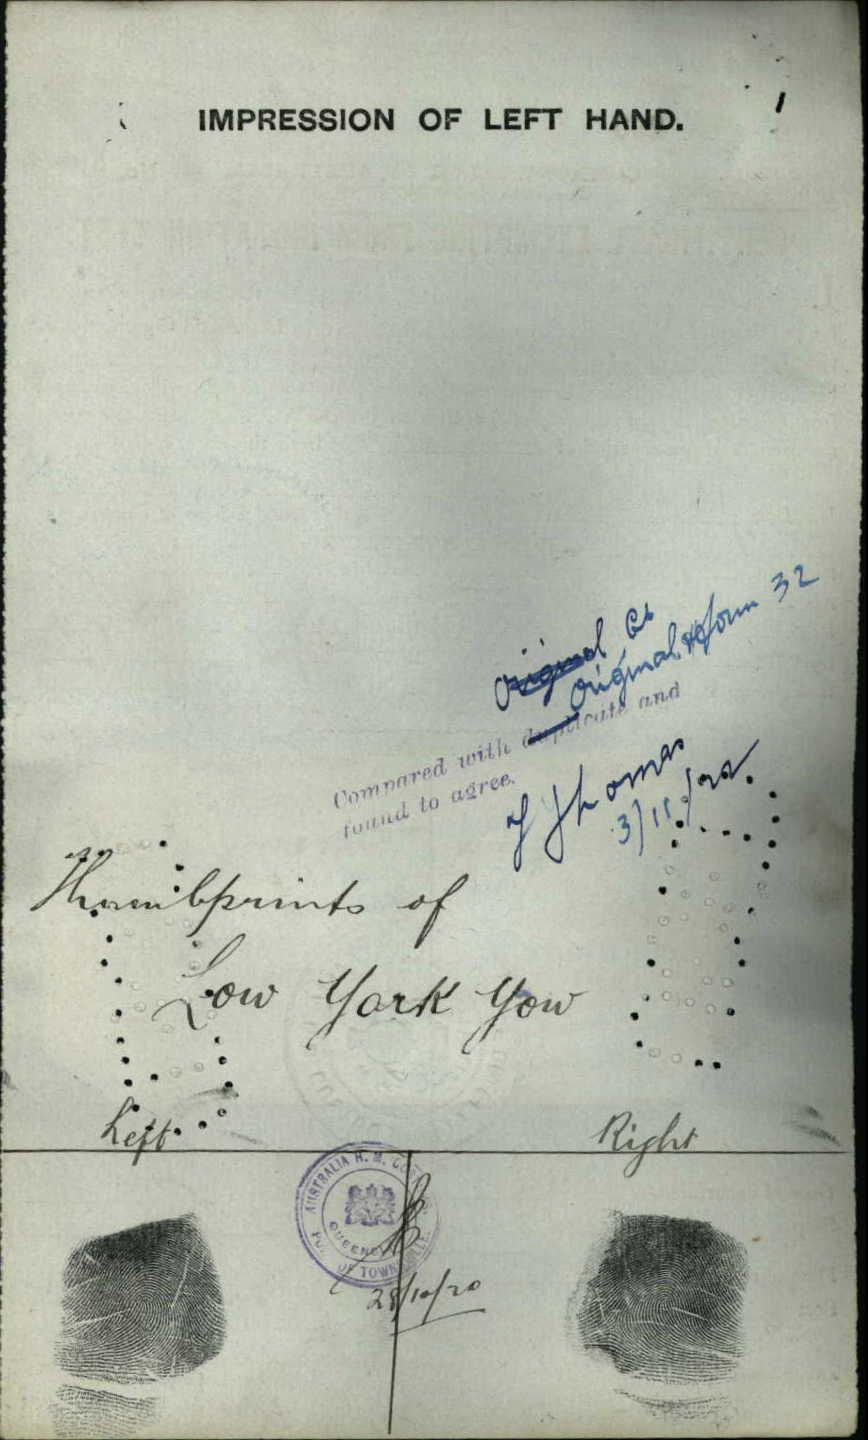 IMPRESSION OF LEFT HAND.
Original Cb
Original & form 32
Compared with duplicate and
found to agree.
Thomas
3/11/22.
Thumbprints of
Low York Yow
Left
Right
AUSTRALIA H. M.
QUEENS
PORT OF TOWNSVILLE
28/10/20